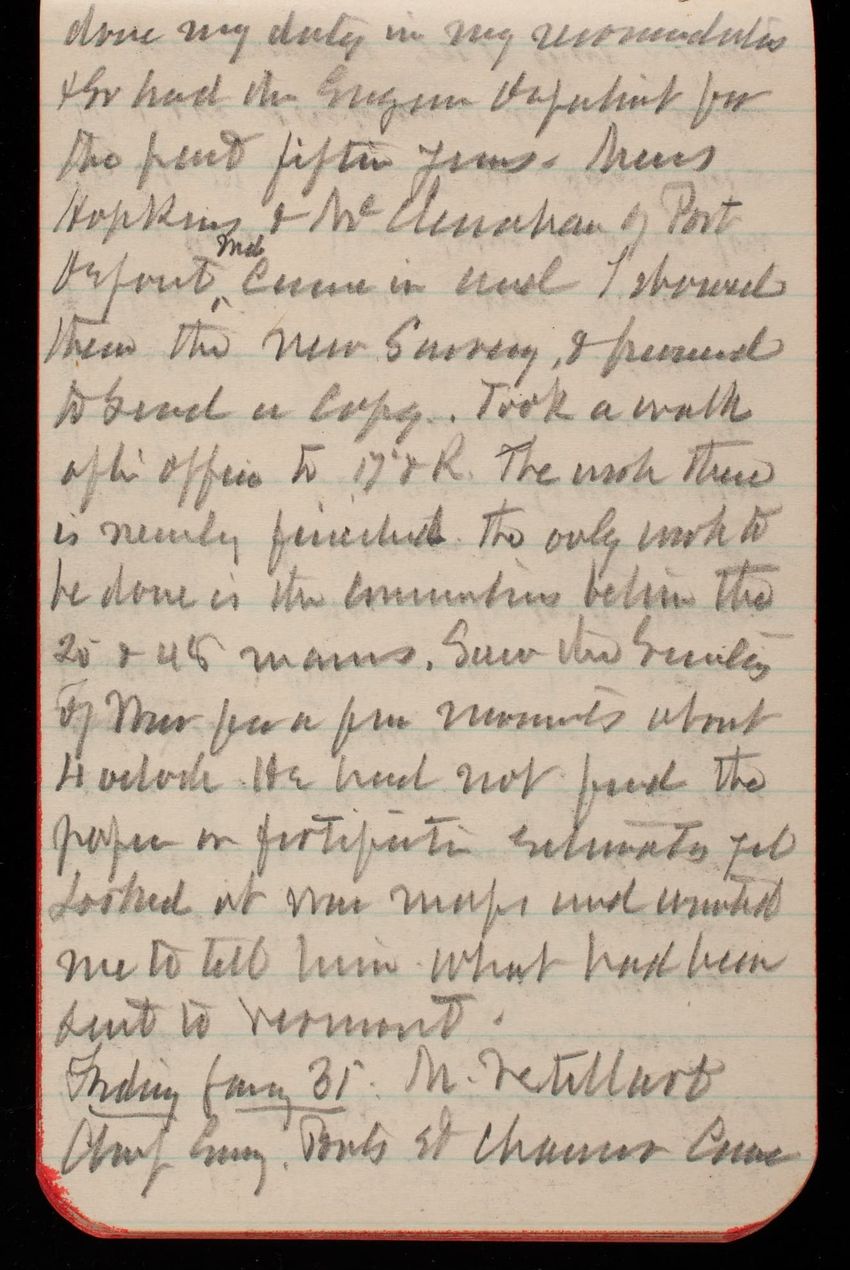 done my duty in my recommendations
& Gr had the Engineer Department for
the past fifteen years. Messrs
Hopkins & Mc Clenahan of Port
Deposit, Md came in and I showed
them the new Survey, & promised
to send a copy. Took a walk
after office to 17th & R. The work there
is nearly finished. The only work to
be done is the connections between the
20 & 48 mains. Saw the Secretary
of War for a few moments about
4 oclock. He had not read the
paper on fortification estimates yet
Looked at war maps and wanted
me to tell him what had been
sent to Vermont.
Friday Jany 31. M. Vetillart
Chief Eng. Ponts et Chausses Came